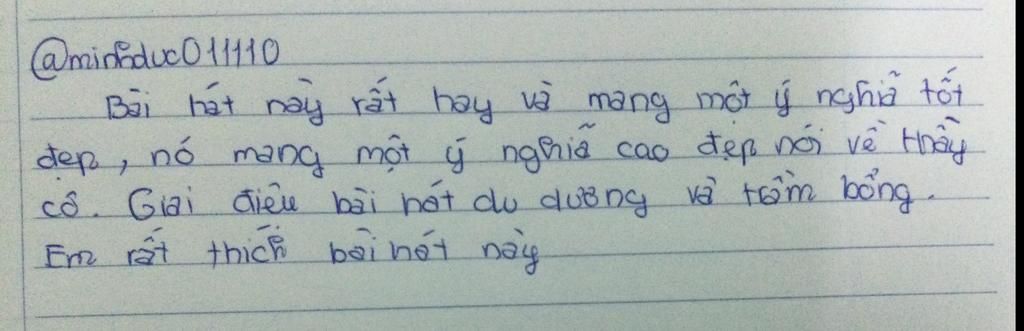 @minhduc011110
Bài hát này rất hay và mang một ý nghĩa tốt
đẹp, nó mang một ý nghĩa cao đẹp nói về thầy
cô. Giai điệu bài hát du dương và trầm bổng.
Em rất thích bài hát này